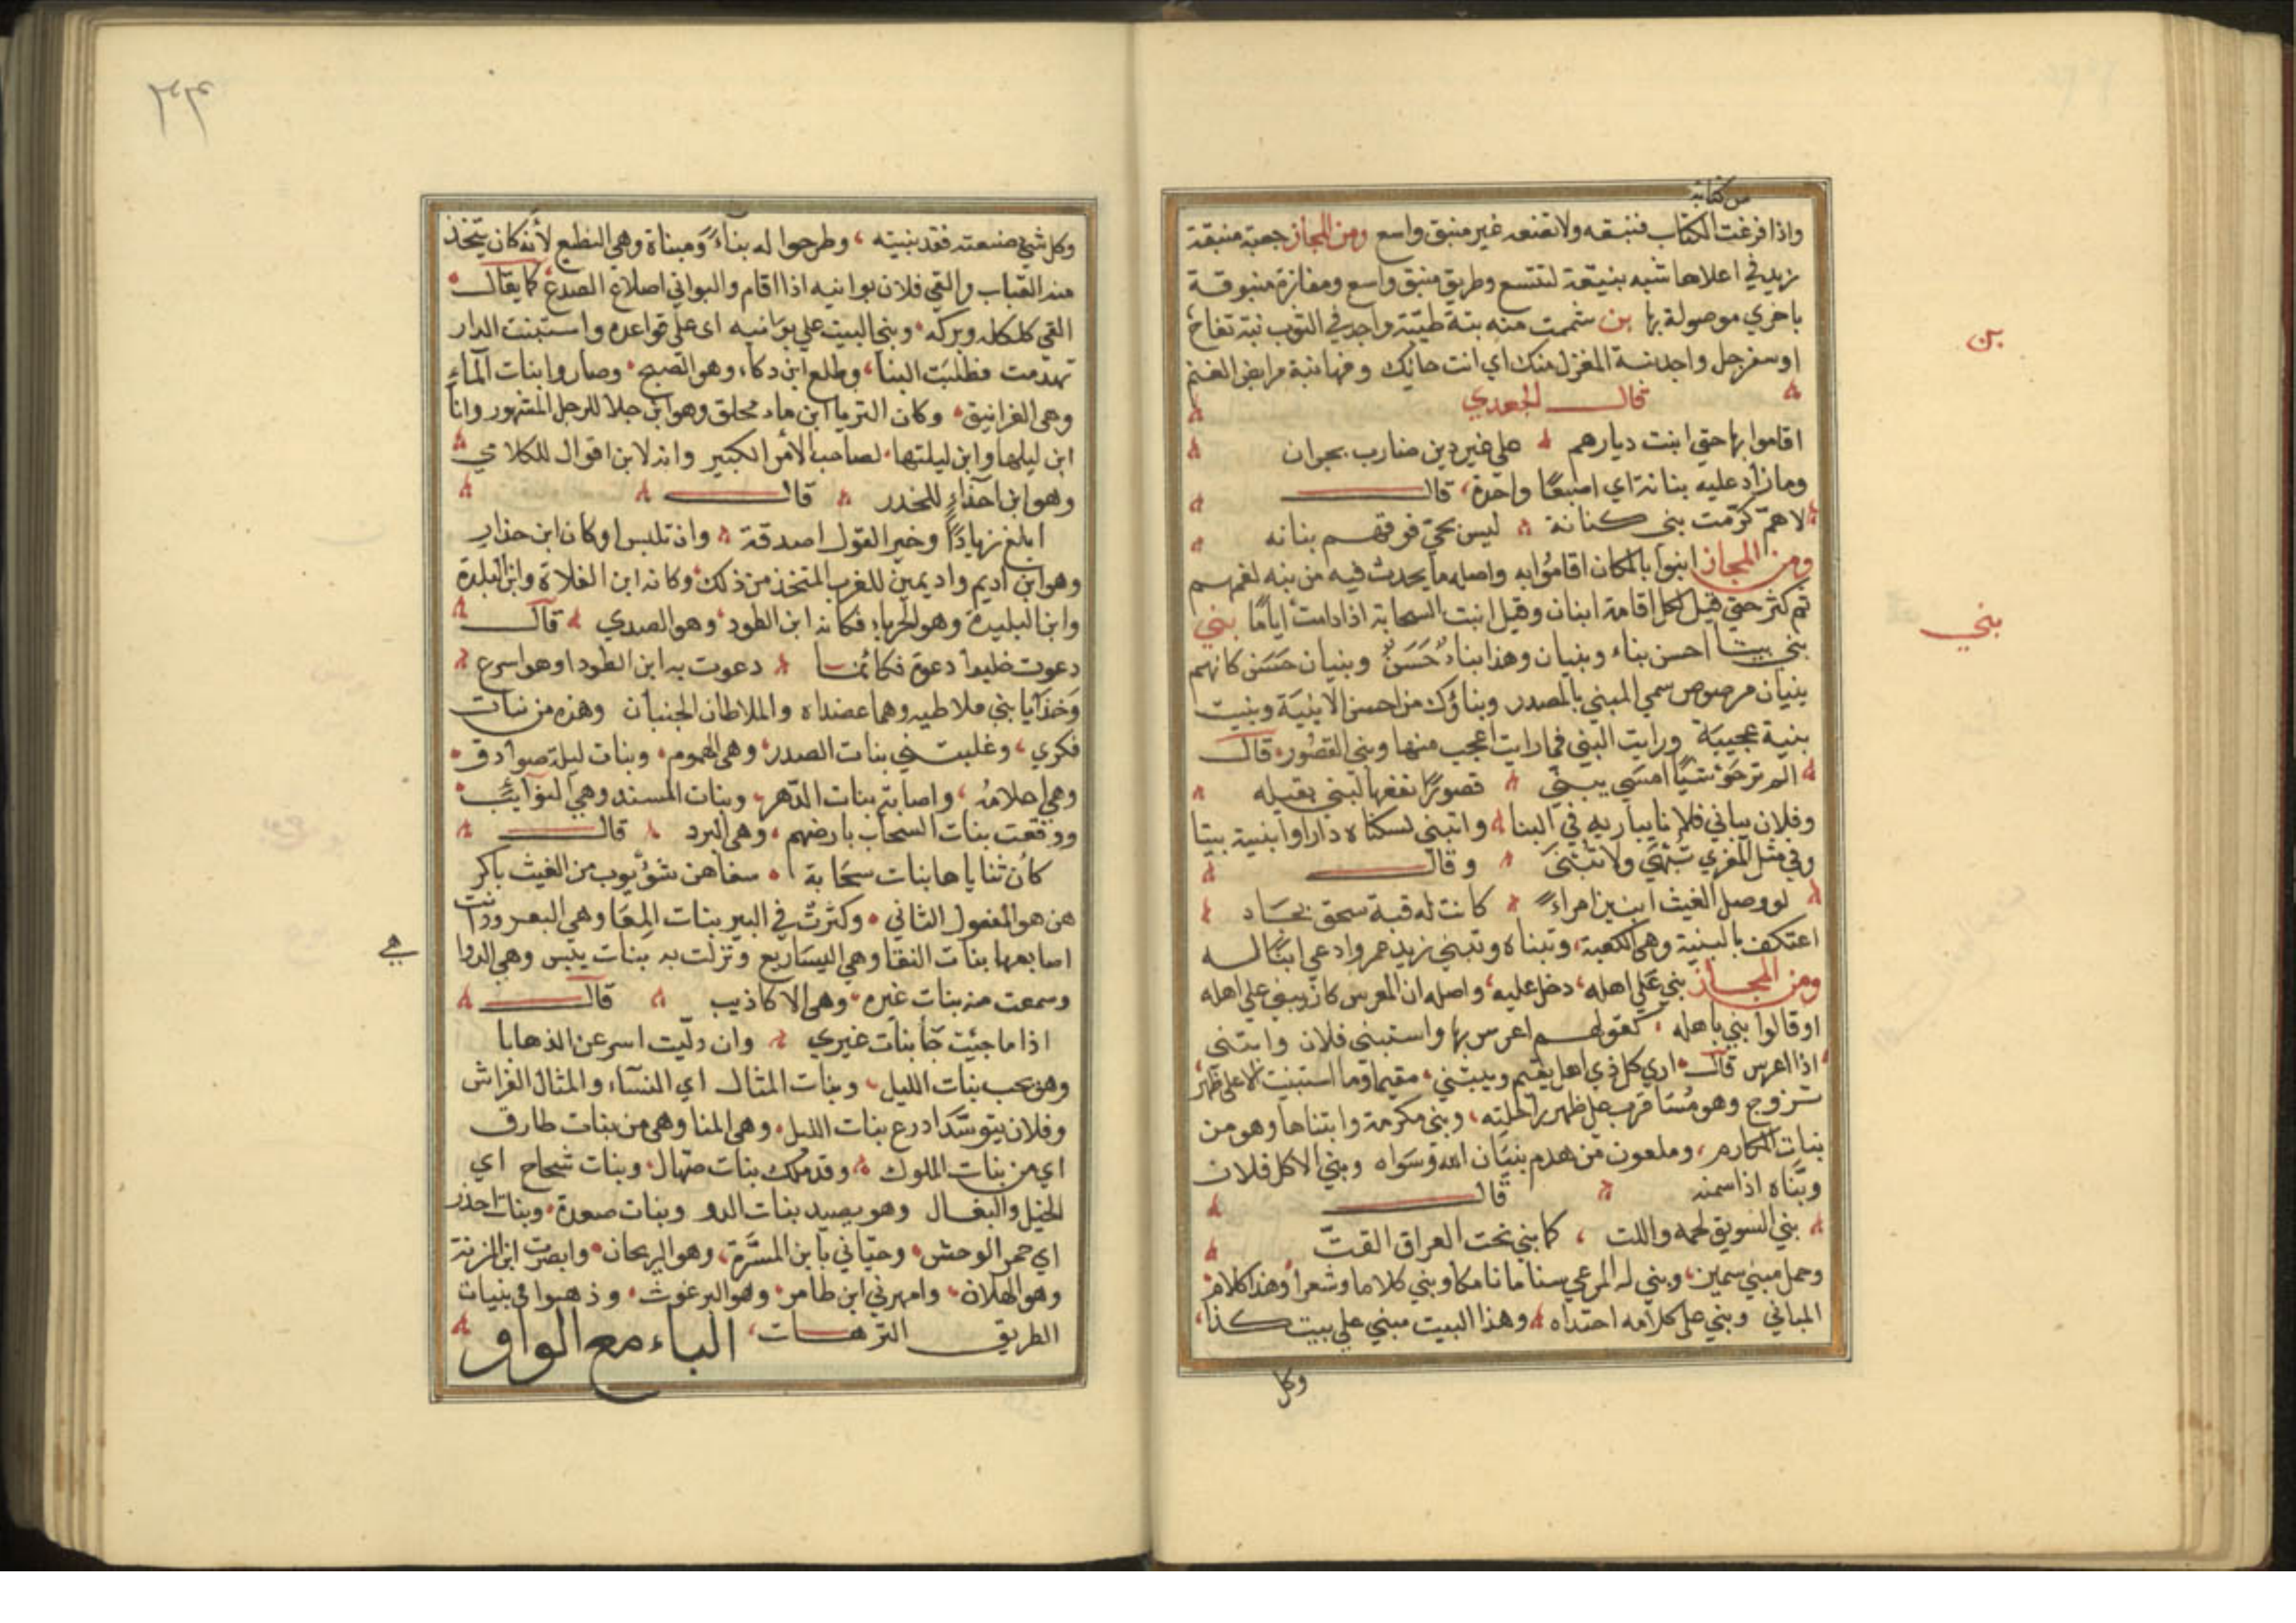 من كتابة
واذا فرغت الكتاب فنبقه ولا تضعه غير منبق واسع ومن المجاز جعبة منبقة
زيد في اعلاها شبه بنيقة لتتسع وطريق منبق واسع ومفازة منبوقة
باخري موصولة بها بن شممت منه بنة طيبة واجد في الثوب بنة تفاح
او سفرجل واجد بنة المغزل منك اي انت حائك وفيها بنة مرابض الغنم
قال الجعدي
اقاموا بها حتي ابنت ديارهم علي غير دين ضارب بجران
وما زاد عليه بنانة اي اصبعًا واحدة، قال
لاهم كرّمت بني كنانة ليس لحيّ فوقهم بنانه
ومن المجاز ابنوا بالمكان اقاموا به واصله ما يحدث فيه من بنة نعمهم
ثم كثر حتي قيل لكل اقامة ابنان وقيل ابنت السحابة اذا دامت أيامًا بني
بني بيتا احسن بناء وبنيان وهذا بناءٌ حَسَنٌ وبنيان حَسَن كانهم
بنيان مرصوص سمي المبني بالمصدر وبناؤك من احسن الابنية وبنيت
بنية عجيبة ورايت البني فما رايت اعجب منها وبني القصور، قال
الم تر حوشبًا امسي يبنّي قصورًا نفعها لبني بقيله
وفلان يباني فلانا يباريه في البنا وابتني لسكناه دارا وابنيته بيتا
وفي مثل المعزي تبهي ولا تبني وقال
لو وصل الغيث ابنين امرأً كانت له قبة سحق بجاد
اعتكف بالبنية وهي الكعبة، وتبناه وتبني زيد عمروا دعي ابنا له
ومن المجاز بني علي اهله، دخل عليه، واصله ان المعرس كان يبني علي اهله
او قالوا بني باهله، كقولهم اعرس بها واستبني فلان وابتني
اذا اعرس قال اري كل ذي اهل يقيم ويبتني مقيما وما استبنيت الا علي ظهر
تزوج وهو مسافر علي ظهر راحلته، وبني مكرمة وابتناها وهو من
بنات المكارم، وملعون من هدم بنيان الله وسواه وبني الاكل فلان
وبنّاه اذا سمنه قال
بني السويق لحمه واللت، كما بني بخت العراق القتّ
وحمل مبني سمين، وبني له المرعي سناما نامكا وبني كلاما وشعرا وهذا كلام
المباني وبني علي كلامه احتذاه وهذا البيت مبني علي بيت كذا،
وكل
بن
بني
وكل شيء صنعته فقد بنيته، وطرحوا له بناءً ومبناة وهي النطع لأنه كان يتخذ
منه القباب والقي فلان بوانيه اذا اقام والبواني اضلاع الصدع كما يقال
القي كلكله وبركه وبني البيت علي بوانيه اي علي قواعده واستبنت الدار
تهدّمت فطلبت البنا، وطلع ابن ذكاء، وهو الصبح وصاروا بنات الماء
وهي الغرانيق وكان الثريا ابن ماء محلق وهو ابن جلا للرجل المشهور وانا
ابن ليلها وابن ليلتها، لصاحب الأمر الكبير وانه لابن اقوال للكلامي
وهو ابن احذاءٍ للحذر قال
ابلغ زيادًا وخير القول اصدقة وان تلبس او كان ابن حذار
وهو ابن اديم واديمين للغرب المتخذ من ذلك وكانه ابن الفلاة وابن البلدة
وابن البليدة وهو الحرباء، فكانه ابن الطود، وهو الصدي قال
دعوت خليدا دعوة فكانما دعوت به ابن الطود او هو اسرع
وخذ آيا بني ملاطيه وهما عضداه والملاطان الجنبان وهذه من بنات
فكري، وغلبتني بنات الصدر، وهي الهموم وبنات ليلة صوادق
وهي احلامه، واصابته بنات الدهر وبنات المسند وهي النوائب
ووقعت بنات السحاب بارضهم، وهي البرد قال
كان ثناياها بنات سحابة سقاهن شؤبوب من الغيث باكر
هن هو المفعول الثاني وكثرت في البير بنات المعا وهي البعر ورانت
اصابعها بنات النقا وهي اليساريع ونزلت به بنات بئس وهي الدوا
هي
وسمعت منه بنات غيره وهي الاكاذيب قال
اذا ما جئت جا بنات غيري وان وليت اسرعن الذهابا
وهن يحب بنات الليل، وبنات المثال اي النساء والمثال الفراش
وفلان يتوسد اذرع بنات الليل، وهي المنا وهي من بنات طارق
اي من بنات الملوك وقد ملك بنات صهال، وبنات شحاح اي
الخيل والبغال وهو يصيد بنات الدو وبنات صعدة وبنات احذر
اي حمر الوحش وحيّاني بابن المسرّة، وهو الريحان وابصرت ابن المزنة
وهو الهلال، وامهرني ابن طامر وهو البرغوث وذهبوا في بنيات
الطريق الترهات، الباء مع الواو